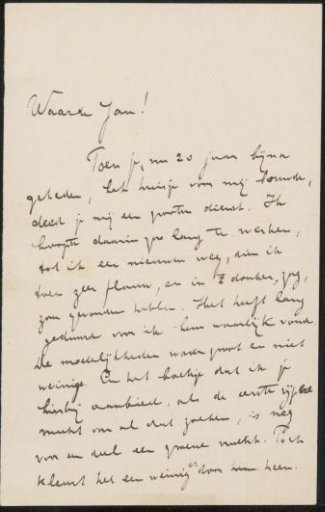 Waarde Jan!
Toen je, nu 20 jaar bijna
geleden, het huisje voor mij bouwde,
deed je mij een grooten dienst. Ik
hoopte daarin zoo lang te werken,
tot ik een nieuwen weg, dien ik
toen zeer flauw, en in 't donker, zag,
zou gevonden hebben. Het heeft lang
geduurd voor ik hem waarlijk vond.
De moeielijkheden waren groot en niet
weinige. En het boekje dat ik je
hierbij aanbied, als de eerste rijpe
vrucht van al dat zoeken, is nog
voor een deel een groene vrucht. Toch
kleurt het een weinig er door heen heen.